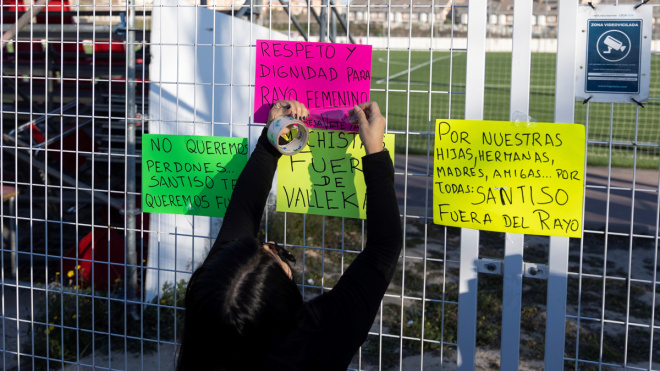 RESPETO Y
DIGNIDAD PARA
RAYO FEMENINO
NO QUEREMOS
PERDONES..
SANTISO TE
QUEREMOS
FUERA
DE
POR NUESTRAS
HIJAS, HERMANAS,
MADRES, AMIGAS... POR
TODAS: SANTISO
FUERA DEL RAYO
ZONA VIDEOVIGILADA